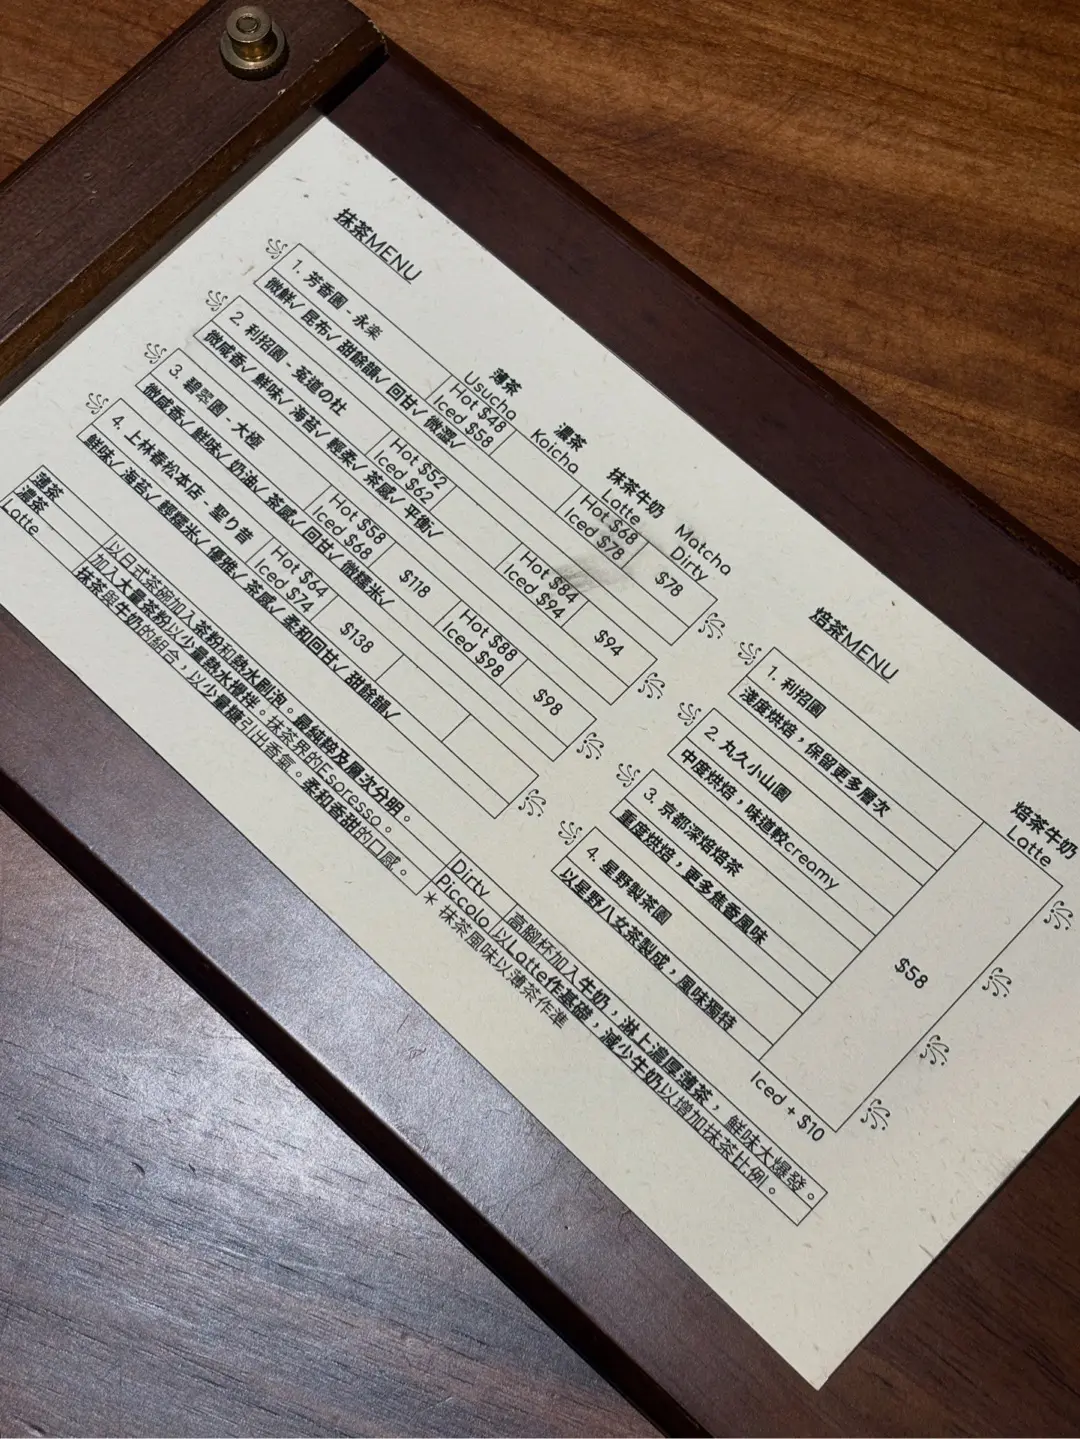 抹茶MENU
薄茶
Usucha
濃茶
Koicha
抹茶牛奶
Latte
Matcha
Dirty
1. 芳香園 - 永楽
Hot $48
Iced $58
Hot $68
Iced $78
$78
微鮮✓ 昆布✓ 甜餘韻✓ 回甘✓ 微澀✓
2. 利招園 - 菟道の杜
Hot $52
Iced $62
Hot $84
Iced $94
$94
微咸香✓ 鮮味✓ 海苔✓ 輕柔✓ 茶感✓ 平衡✓
3. 碧翠園 - 大極
Hot $58
Iced $68
$118
Hot $88
Iced $98
$98
微咸香✓ 鮮味✓ 奶油✓ 茶感✓ 回甘✓ 微糯米✓
4. 上林春松本店 - 聖り昔
Hot $64
Iced $74
$138
鮮味✓ 海苔✓ 輕糯米✓ 優雅✓ 茶感✓ 柔和回甘✓ 甜餘韻✓
薄茶 以日式茶碗加入茶粉和熱水刷泡。最純粹及層次分明。
濃茶 加入大量茶粉以少量熱水攪拌。抹茶界的Espresso。
Latte 抹茶與牛奶的組合，以少量糖引出香氣。柔和香甜的口感。
焙茶MENU
焙茶牛奶
Latte
1. 利招園
淺度烘焙，保留更多層次
2. 丸久小山園
中度烘焙，味道較creamy
3. 京都深焙焙茶
重度烘焙，更多焦香風味
4. 星野製茶園
以星野八女茶製成，風味獨特
$58
Iced + $10
Dirty 高腳杯加入牛奶，淋上濃厚薄茶，鮮味大爆發。
Piccolo 以Latte作基礎，減少牛奶以增加抹茶比例。
* 抹茶風味以薄茶作準